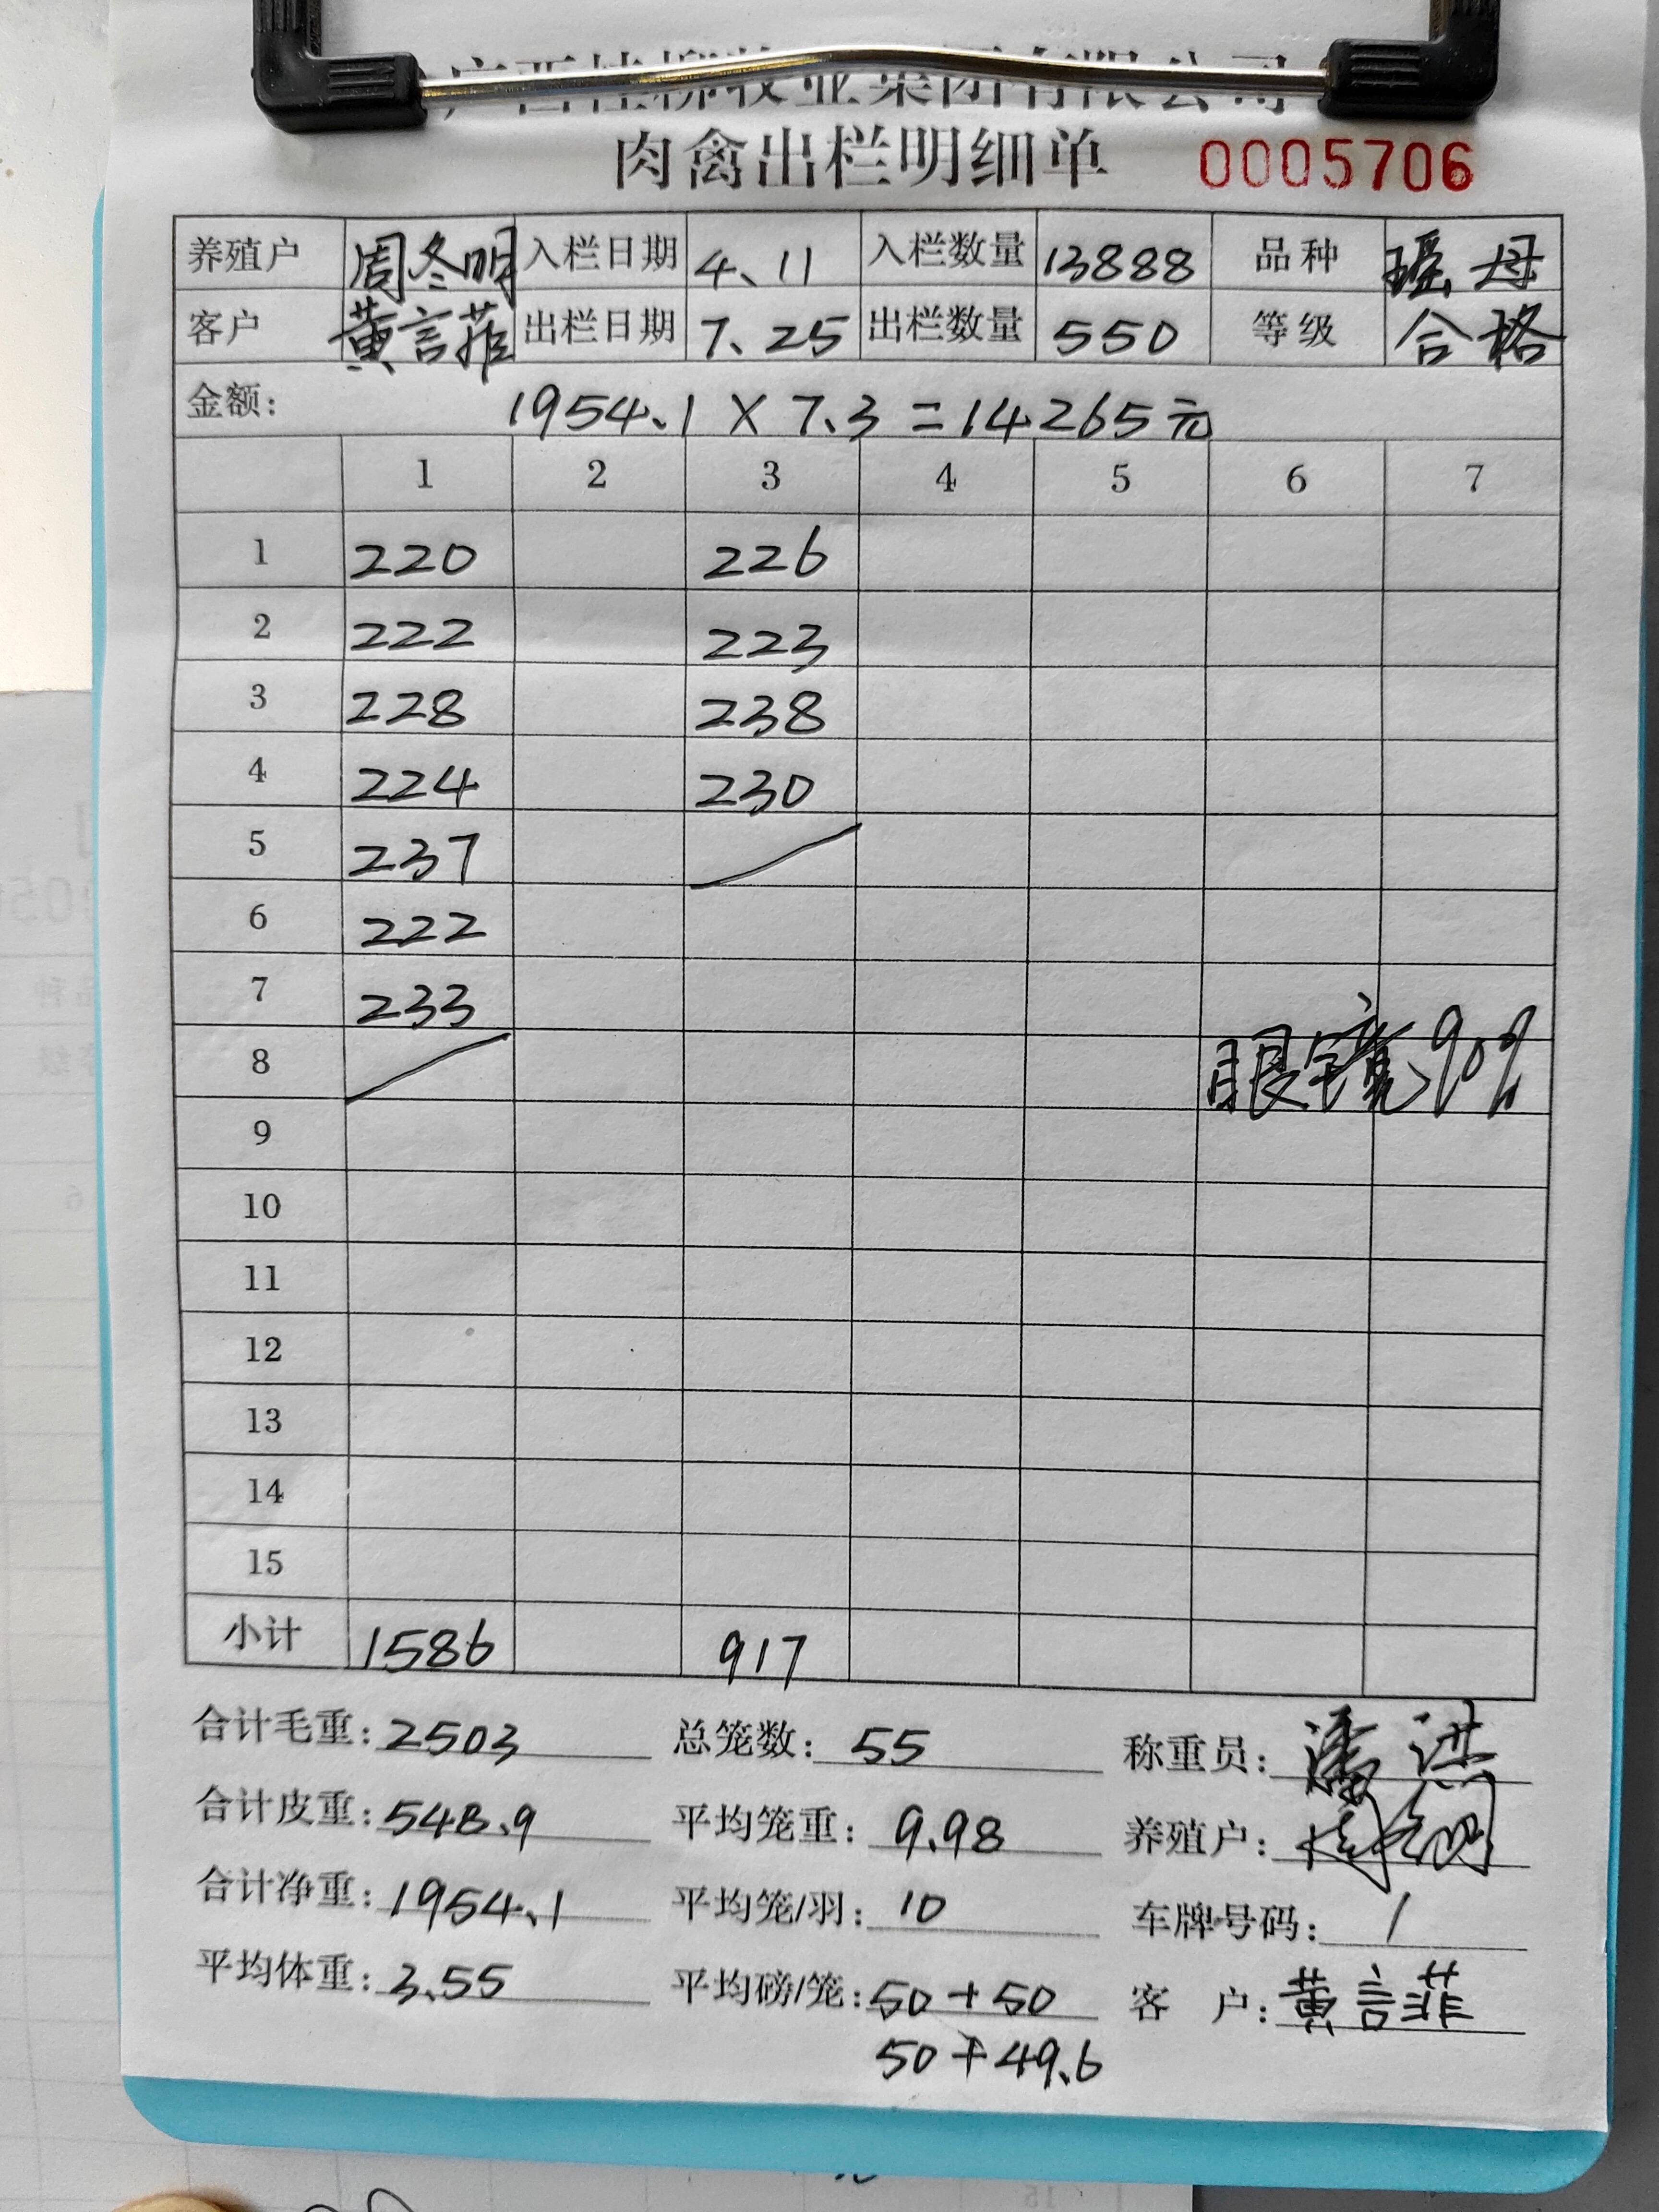 广西桂柳牧业集团有限公司
肉禽出栏明细单 0005706
养殖户 周冬明 入栏日期 4、11 入栏数量 13888 品种 瑶母
客户 黄言菲 出栏日期 7、25 出栏数量 550 等级 合格
金额: 1954、1 × 7、3 = 14265元
1 2 3 4 5 6 7
1 220 226
2 222 223
3 228 238
4 224 230
5 237
6 222
7 233
8 眼镜90%
9
10
11
12
13
14
15
小计 1586 917
合计毛重: 2503 总笼数: 55 称重员: 潘洪
合计皮重: 548、9 平均笼重: 9、98 养殖户:
合计净重: 1954、1 平均笼/羽: 10 车牌号码: /
平均体重: 3、55 平均磅/笼: 50+50 客户: 黄言菲
50+49、6